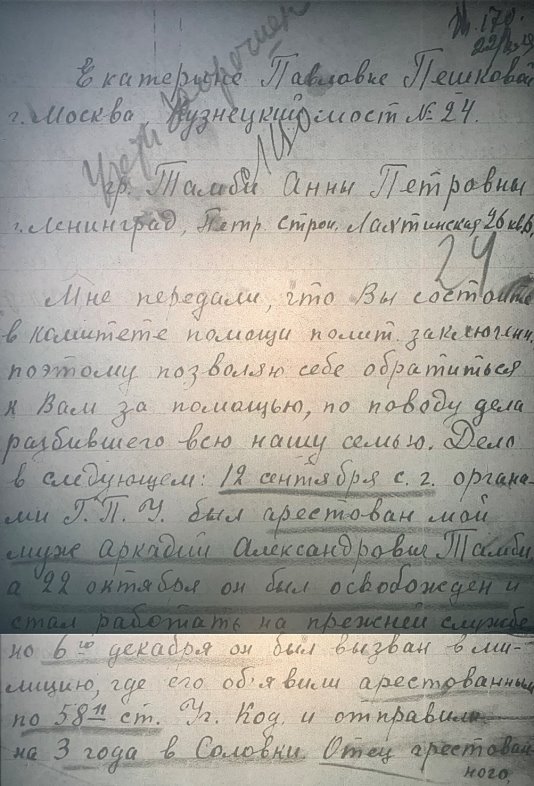 Екатерине Павловне Пешковой
г. Москва, Кузнецкий мост № 24.
гр. Тамби Анны Петровны
г. Ленинград, Петр. Строн. Лахтинская 26 кв.
24
Мне передали, что Вы состоите
в комитете помощи полит. заключен.
поэтому позволяю себе обратиться
к Вам за помощью, по поводу дела
разбившего всю нашу семью. Дело
в следующем: 12 сентября с. г. органа-
ми Г. П. У. был арестован мой
муж Аркадий Александрович Тамби,
а 22 октября он был освобожден и
стал работать на прежней службе
но 6го декабря он был вызван в ми-
лицию, где его об'явили арестованным
по 58 11 ст. Уг. Код. и отправили
на 3 года в Соловки. Отец арестован-
ного,